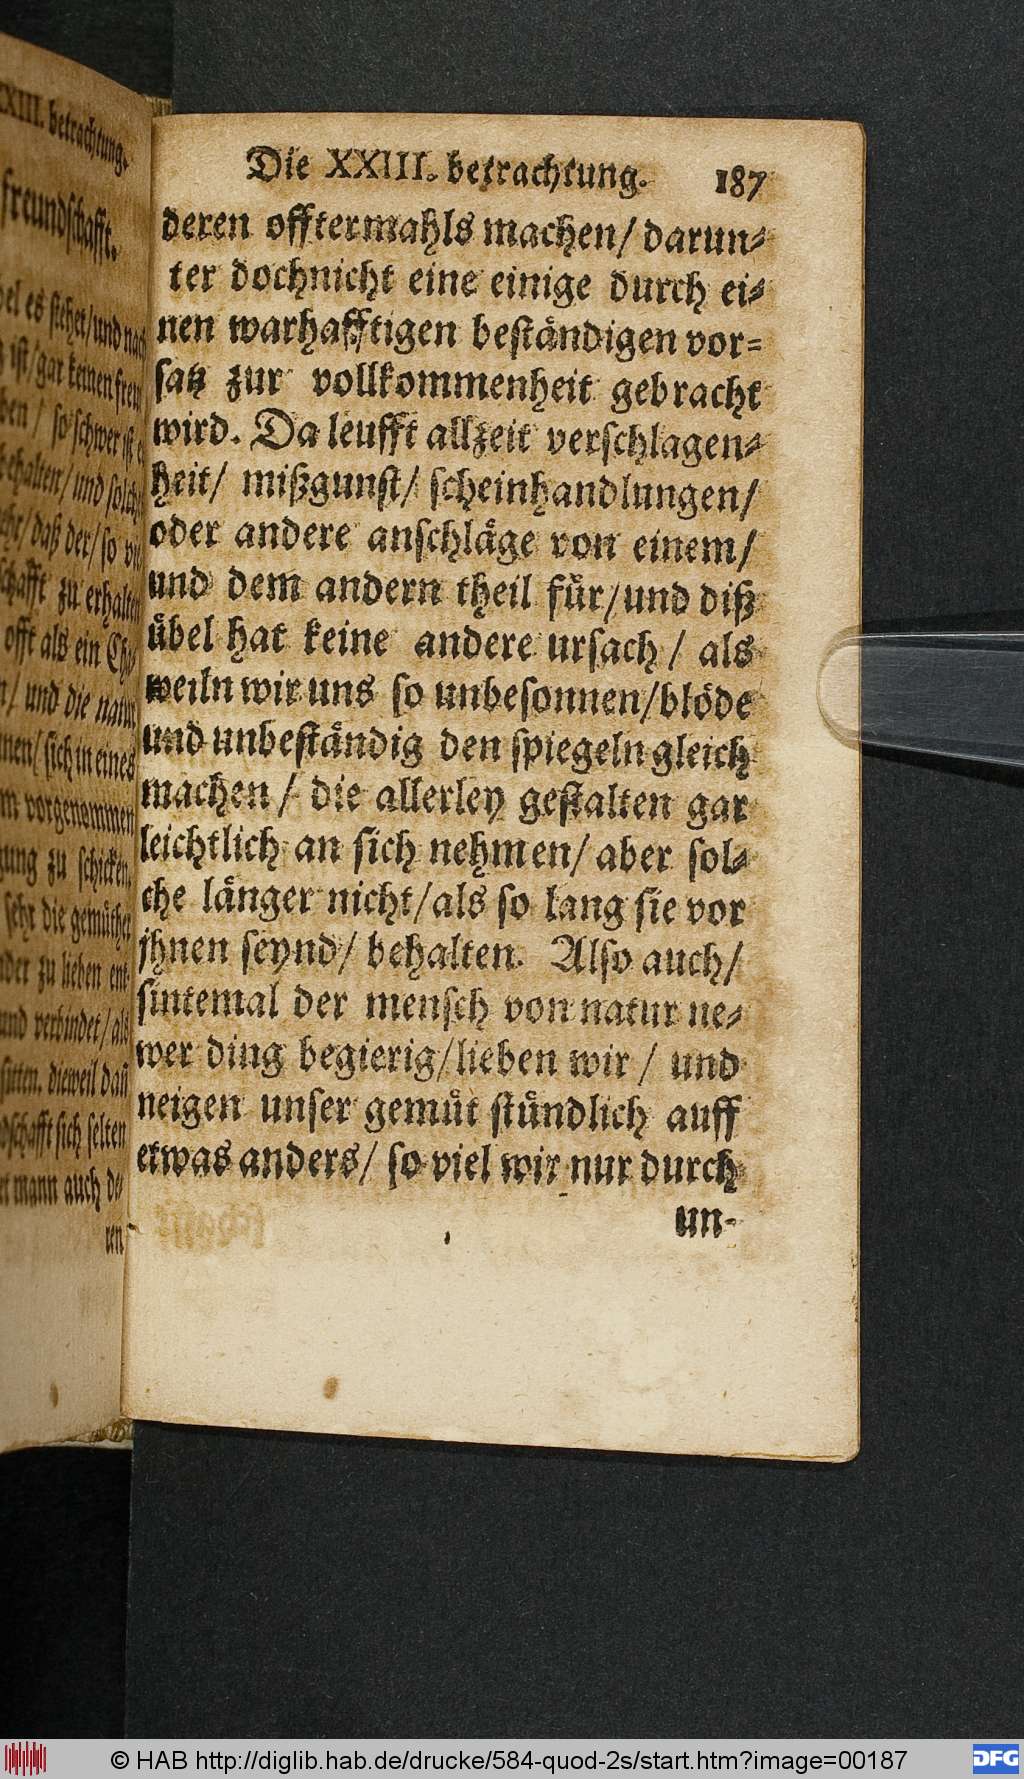 XXIII. betrachtung.
freundschafft.
es stehet/und nach
ist/gar keinen freun
so schwer ist e
behalten/und solch
daß der/so
schafft zu erhalten
offt als ein
und die natur
sich in eines
vorgenommen
zu schicken.
sehr die gemüther
zu lieben
und verbindet/als
dieweil dañ
sich selten
mann auch de-
ren
Die XXIII. betrachtung. 187
deren offtermahls machen/ darun-
ter dochnicht eine einige durch ei-
nen warhafftigen beständigen vor-
satz zur vollkommenheit gebracht
wird. Da leufft allzeit verschlagen-
heit/ mißgunst/ scheinhandlungen/
oder andere anschläge von einem/
und dem andern theil für/und diß
übel hat keine andere ursach/ als
weiln wir uns so unbesonnen/blöde
und unbeständig den spiegeln gleich
machen/ die allerley gestalten gar
leichtlich an sich nehmen/ aber sol-
che länger nicht/als so lang sie vor
jhnen seynd/ behalten. Also auch/
sintemal der mensch von natur ne-
wer ding begierig/lieben wir/ und
neigen unser gemüt stündlich auff
etwas anders/ so viel wir nur durch
un-
© HAB http://diglib.hab.de/drucke/584-quod-2s/start.htm?image=00187
DFG